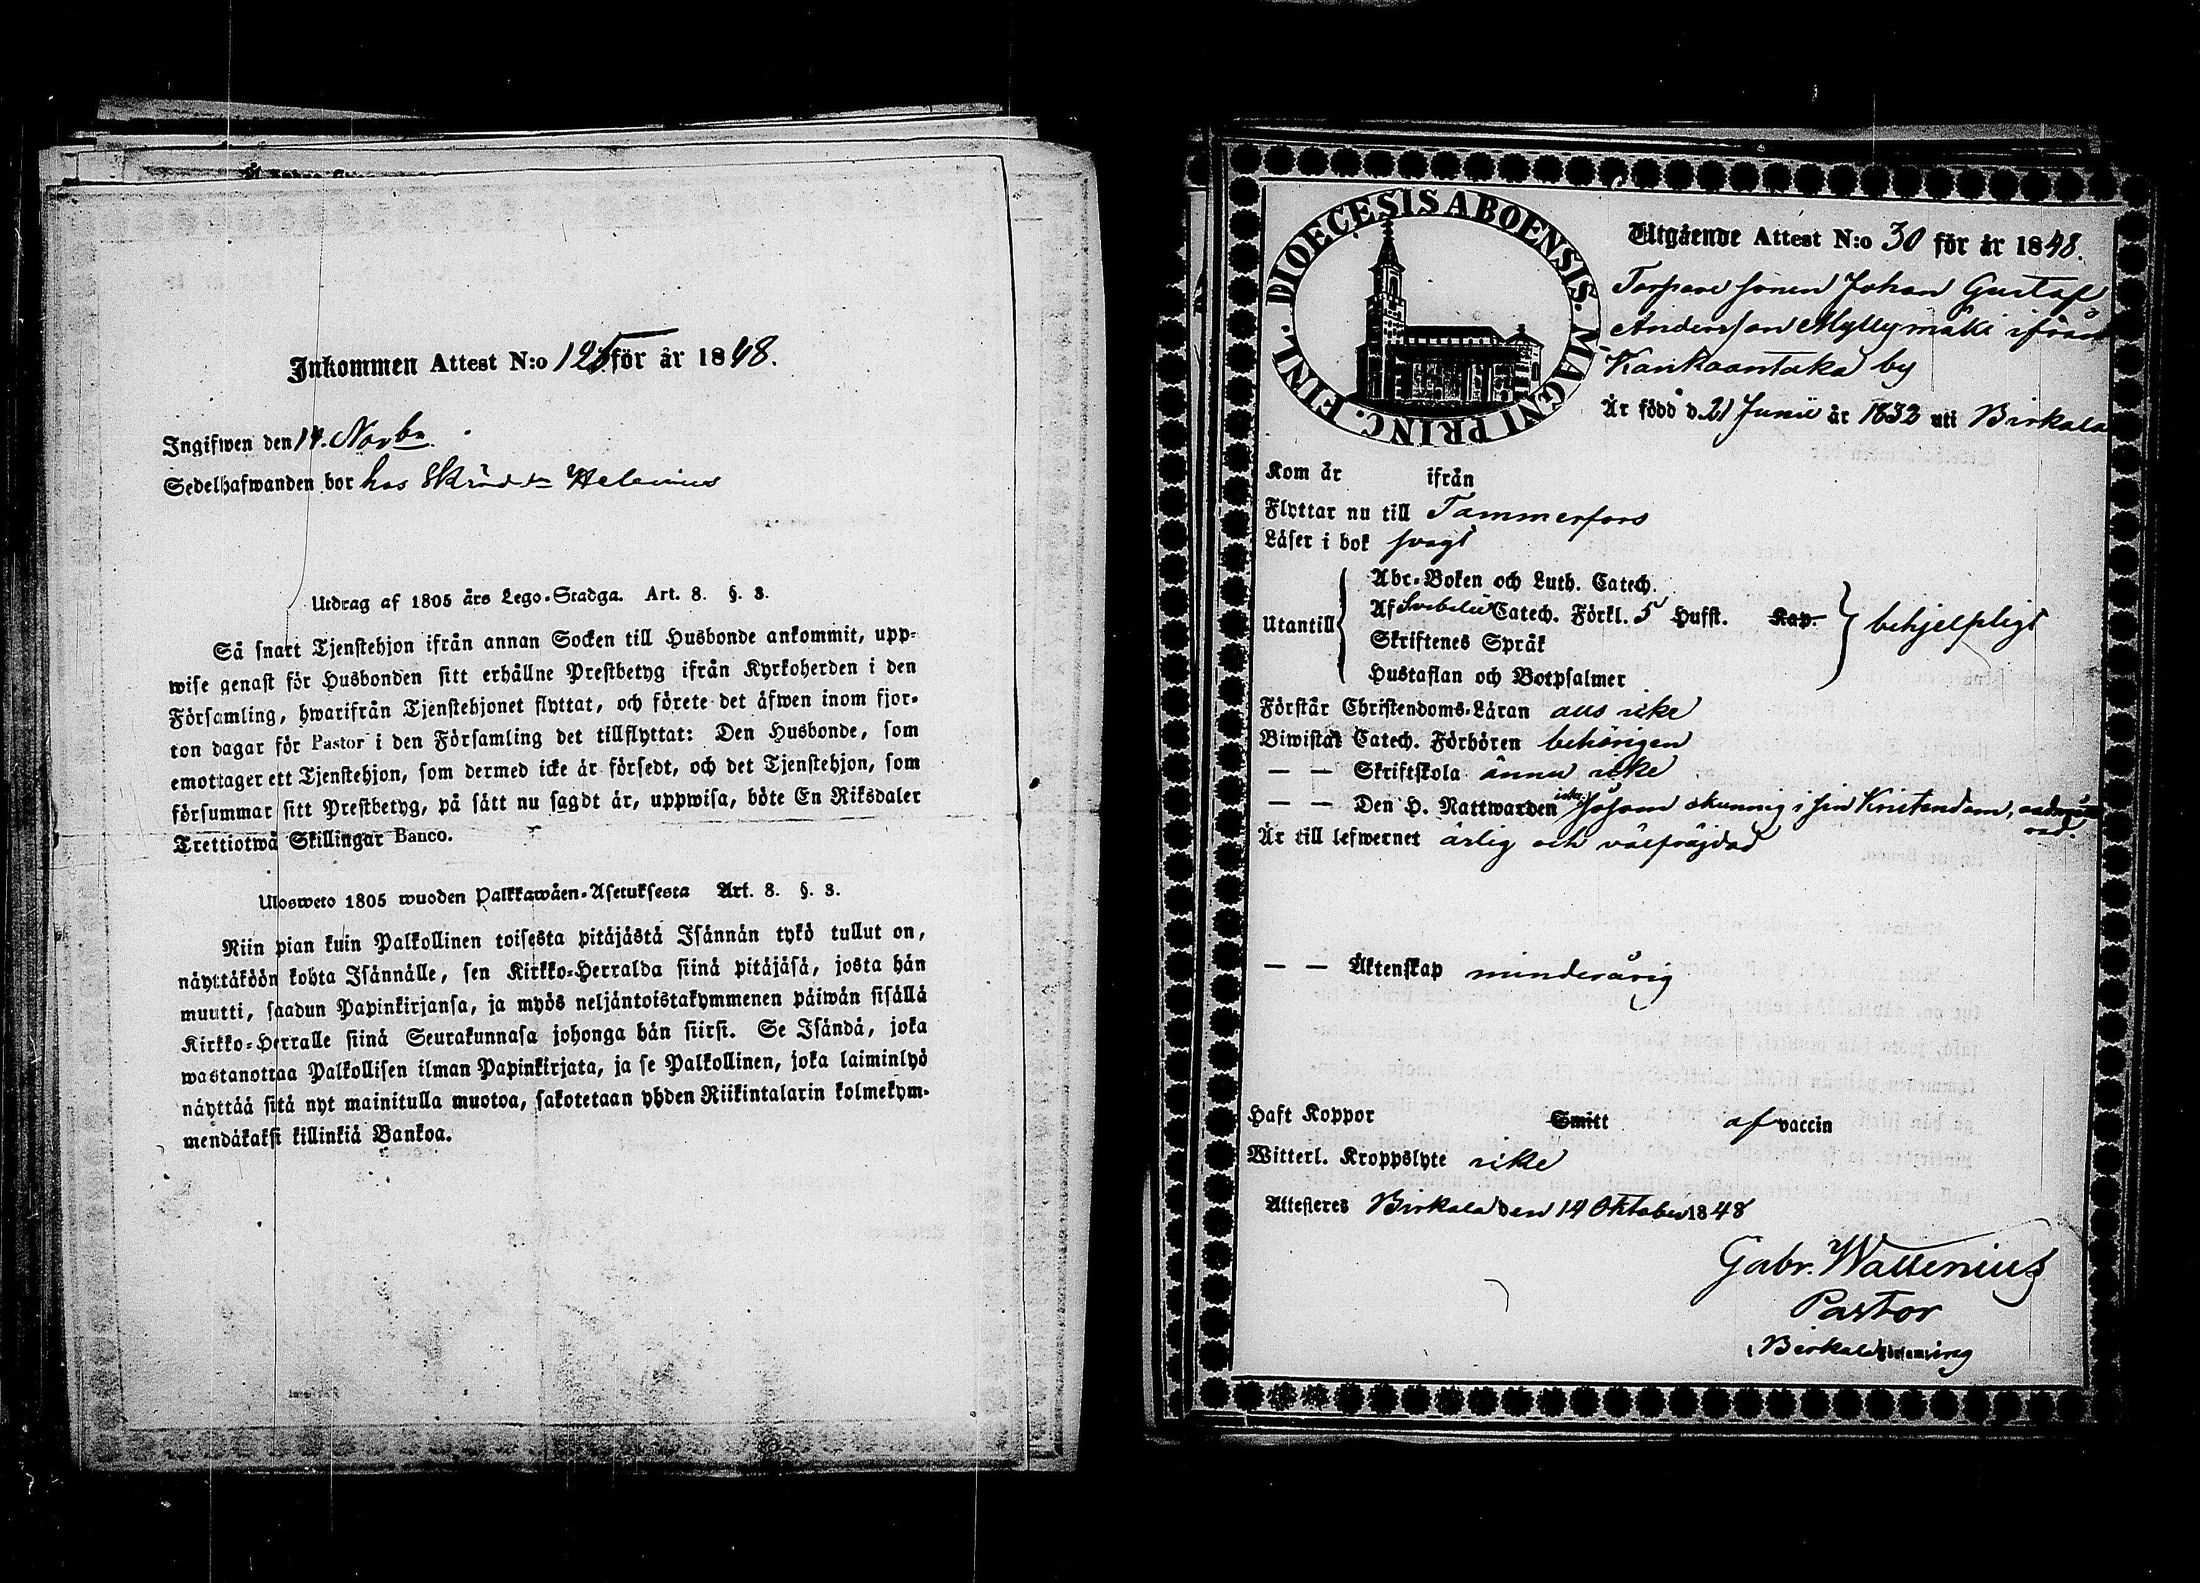 Inkommen Attest N:o 125 för år 1848.
Ingifwen den 14. Novbr
Sedelhafwanden bor hos Skrädd Helenius
Utdrag af 1805 års Lego-Stadga. Art. 8. §. 3.
Så snart Tjenstehjon ifrån annan Socken till Husbonde ankommit, upp-
wise genast för Husbonden sitt erhållne Prestbetyg ifrån Kyrkoherden i den
Församling, hwarifrån Tjenstehjonet flyttat, och förete det äfwen inom fjor-
ton dagar för Pastor i den Församling det tillflyttat: Den Husbonde, som
emottager ett Tjenstehjon, som dermed icke är försedt, och det Tjenstehjon, som
försummar sitt Prestbetyg, på sätt nu sagdt är, uppwisa, böte En Riksdaler
Trettiotwå Skillingar Banco.
Ulosweto 1805 wuoden Palkkawäen-Asetuksesta Art. 8. §. 3.
Niin pian kuin Palkollinen toisesta pitäjästä Isännän tykö tullut on,
näyttäköön kohta Isännälle, sen Kirkko-Herralda siinä pitäjäsä, josta hän
muutti, saadun Papinkirjansa, ja myös neljäntoistakymmenen päiwän sisällä
Kirkko-Herralle siinä Seurakunnasa johonga hän siirsi. Se Isändä, joka
wastanottaa Palkollisen ilman Papinkirjata, ja se Palkollinen, joka laiminlyö
näyttää sitä nyt mainitulla muotoa, sakotetaan yhden Riikintalarin kolmekym-
mendäkaksi killinkiä Bankoa.
DIOECESIS ABOENSIS. MAGNI PRINC. FINL.
Utgående Attest N:o 30 för år 1848.
Torpare sonen Johan Gustaf
Andersson Myllymäki ifrån
Kankaantaka by
Är född d. 21 Junii år 1832 uti Birkala
Kom år ifrån
Flyttar nu till Tammerfors
Läser i bok svagt
Utantill
Abc-Boken och Luth. Catech.
Af Svebelii Catech. Förkl. 5 Hufst. Kap.
Skriftenes Språk
Hustaflan och Botpsalmer
behjelpligt
Förstår Christendoms-Läran alls icke
Biwistat Catech. Förhören behörigen
— — Skriftskola ännu icke
— — Den H. Nattwarden icke, såsom okunnig i sin Kristendom,
Är till lefwernet ärlig och välfräjdad
— — Äktenskap minderårig
Haft Koppor Smitt af vaccin
Witterl. Kroppslyte icke
Attesteres Birkala den 14 Oktober 1848
Gabr. Wallenius
Pastor
i Birkala församling